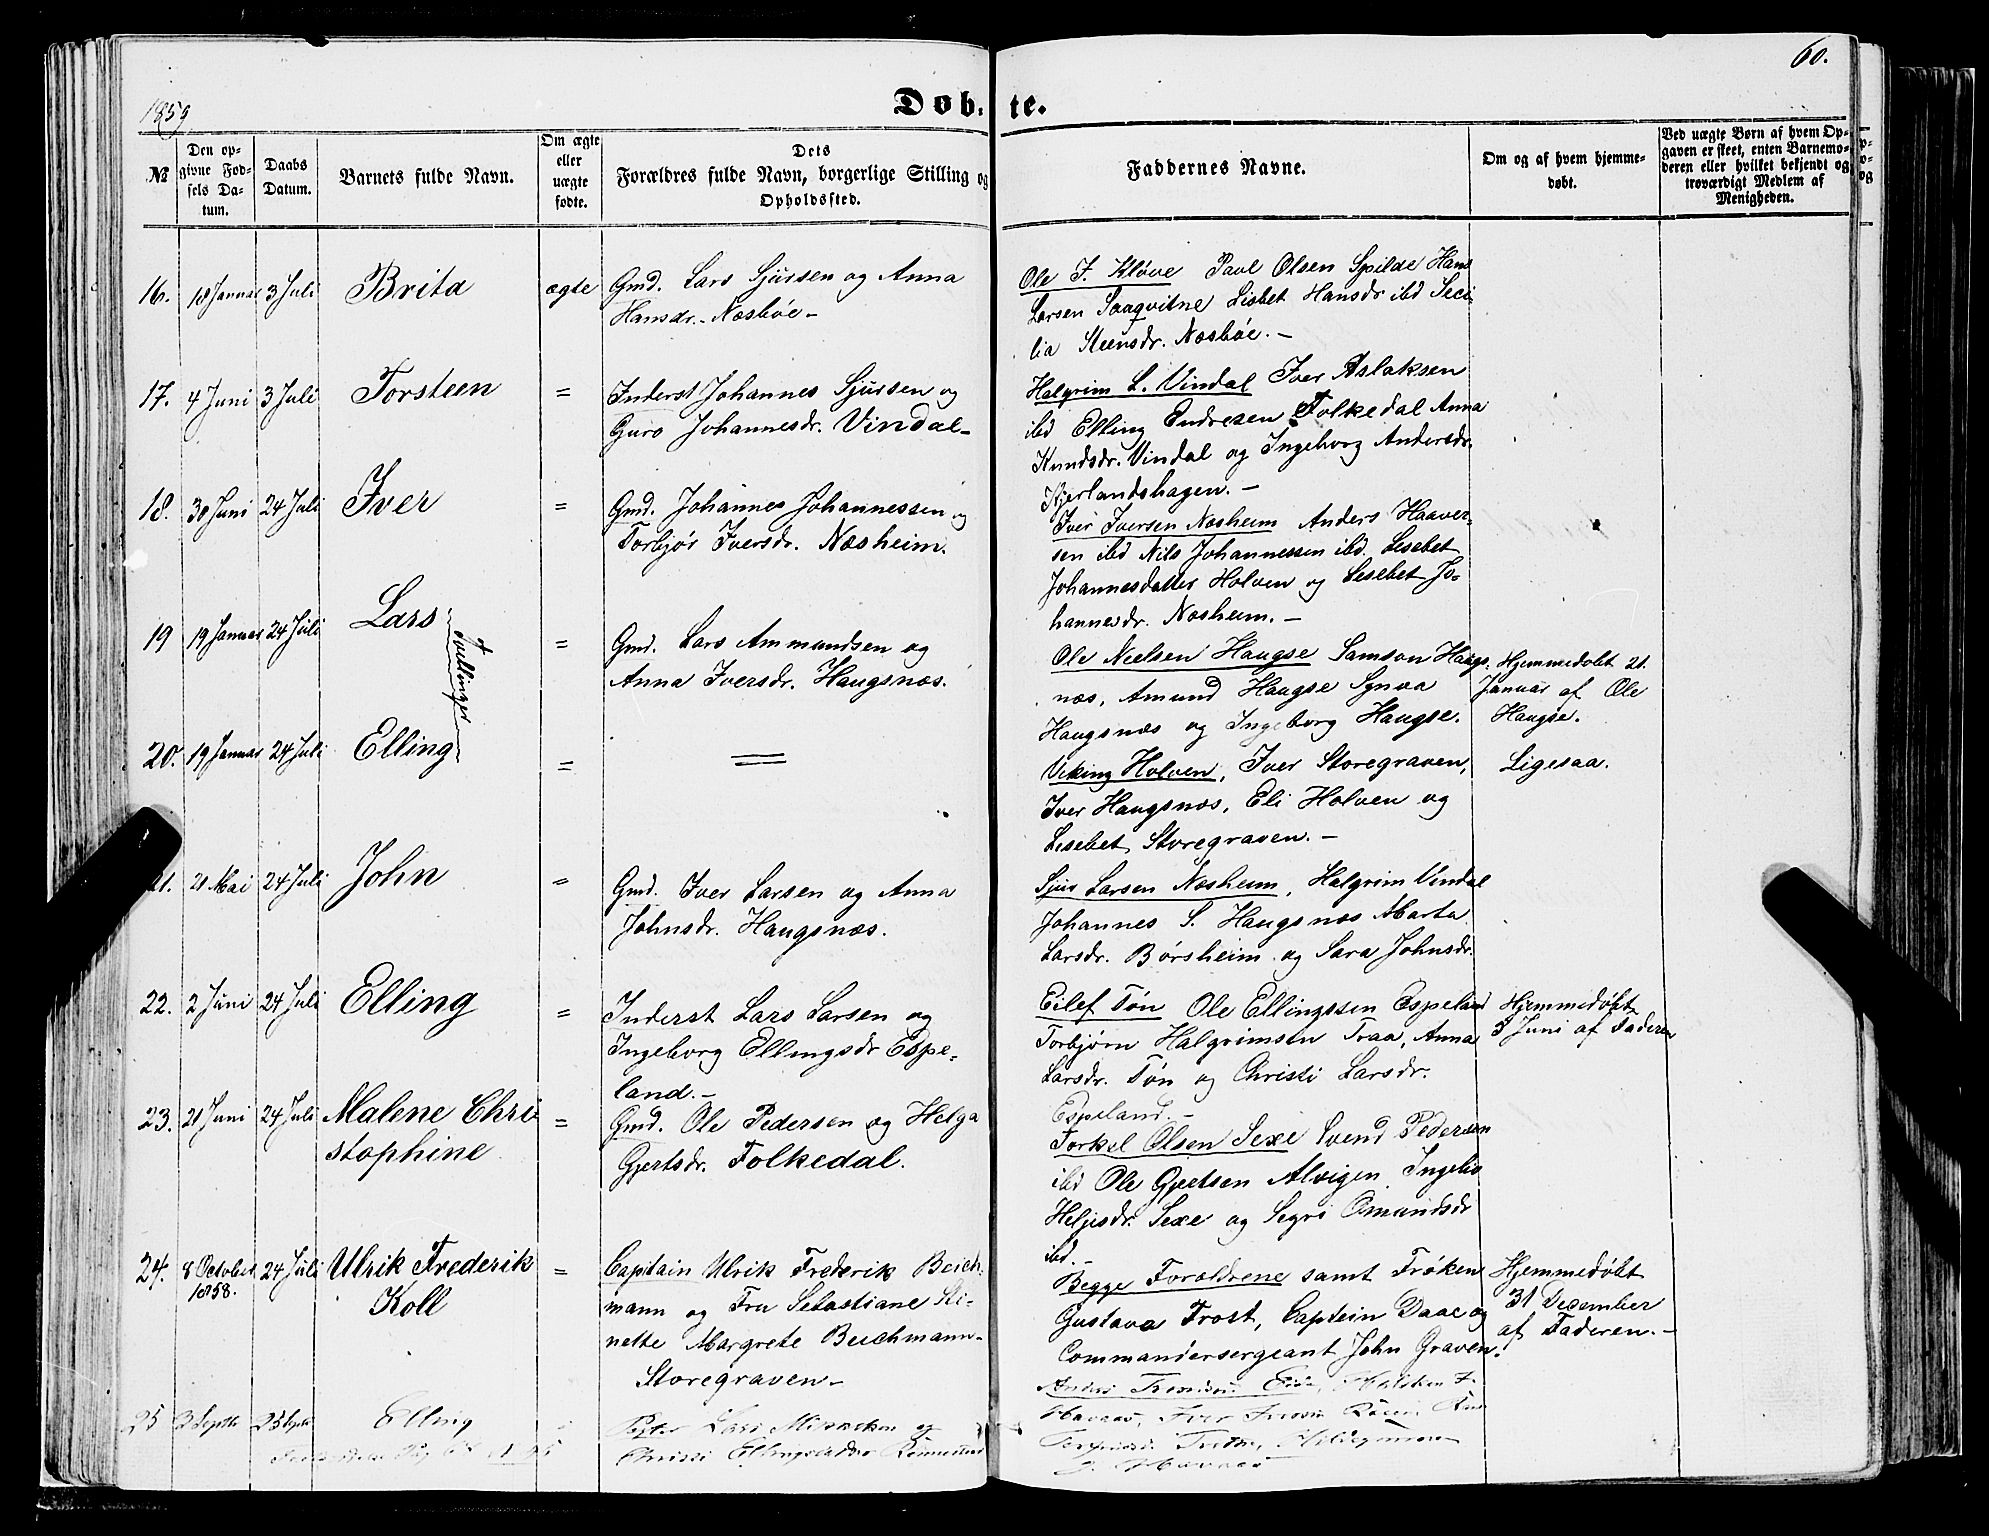 60.
1859
Døb- te.
№
Den op-
givne Fød-
sels Da-
tum.
Daabs
Datum.
Barnets fulde Navn.
Om ægte
eller
uægte
fødte.
Dets
Forældres fulde Navn, borgerlige Stilling og
Opholdssted.
Faddernes Navne.
Om og af hvem hjemme-
døbt.
Ved uægte Børn af hvem Op-
gaven er skeet, enten Barnemo-
deren eller hvilket bekjendt og
troværdigt Medlem af
Menigheden.
16. 18 Januar 3 Juli Brita ægte Gmd. Lars Sjursen og Anna
Hansdr. Næsbøe -
Ole J. Kløve Paul Olsen Spilde Hans
Larsen Saaqvitne Lisbet Hansdr ibd Seci
lia Steensdr. Næsbøe. -
17. 4 Juni 3 Juli Torsteen = Inderst Johannes Sjursen og
Guro Johannesdr. Vindal -
Halgrim L. Vindal Iver Aslaksen
ibd Elling Endresen Folkedal Anna
Knudsdr. Vindal og Ingeborg Andersdr.
Kjerlandshagen. -
18. 30 Juni 24 Juli Iver = Gmd. Johannes Johannessen og
Torbjør Iversdr. Næsheim.
Iver Iversen Næsheim Anders Haaver-
sen ibd Nils Johannessen ibd. Lesebet
Johannesdatter Holven og Lesebet Jo-
hannesdr. Næsheim. -
19 19 Januar 24 Juli Lars = Gmd. Lars Ammundsen og
Anna Iversdr. Haugsnæs.
Tvillinger
Ole Neelsen Haugse Samson Haugs-
næs, Amund Haugse Synva
Haugsnæs og Ingeborg Haugse.
Hjemmedøbt 21.
Januar af Ole
Haugse.
20. 19 Januar 24 Juli Elling = =
Viking Holven, Iver Storegraven,
Iver Haugsnæs, Eli Holven og
Lesebet Storegraven. -
Ligesaa.
21. 21 Mai 24 Juli John = Gmd. Iver Larsen og Anna
Johnsdr. Haugsnæs.
Sjur Larsen Næsheim, Halgrim Vindal
Johannes S. Haugsnæs Marta
Larsdr. Børsheim og Sara Johnsdr.
22. 2 Juni 24 Juli Elling = Inderst Lars Larsen og
Ingeborg Ellingsdr Espe-
land. -
Eilef Tøn Ole Ellingssen Espeland
Torbjørn Halgrimsen Traa, Anna
Larsdr. Tøn og Christi Larsdr.
Espeland. -
Hjemmedøbt
3 Juni af Faderen
23. 21 Juni 24 Juli Malene Chri
stophine = Gmd. Ole Pedersen og Helga
Gjertsdr. Folkedal.
Torkel Olsen Sexe Svend Pedersen
ibd Ole Gjertsen Alvigen
Heljesdr. Sexe og Segri Omundsdr
ibd. -
24. 8 October
1858. 24 Juli Ulrik Frederik
Koll = Capitain Ulrik Frederik Beich-
mann og Fru Sebastiane Sti-
nette Margrete Beichmann -
Storegraven -
Begge Forældrene samt Frøken
Gustava Frost, Captein Daae og
Commandersergeant John Graven.
Hjemmedøbt
31 December
af Faderen. -
25 3 Septbr 25 Septbr Elling
Lars
Christi Ellingsdatter
Havaas, Iver
Havaas